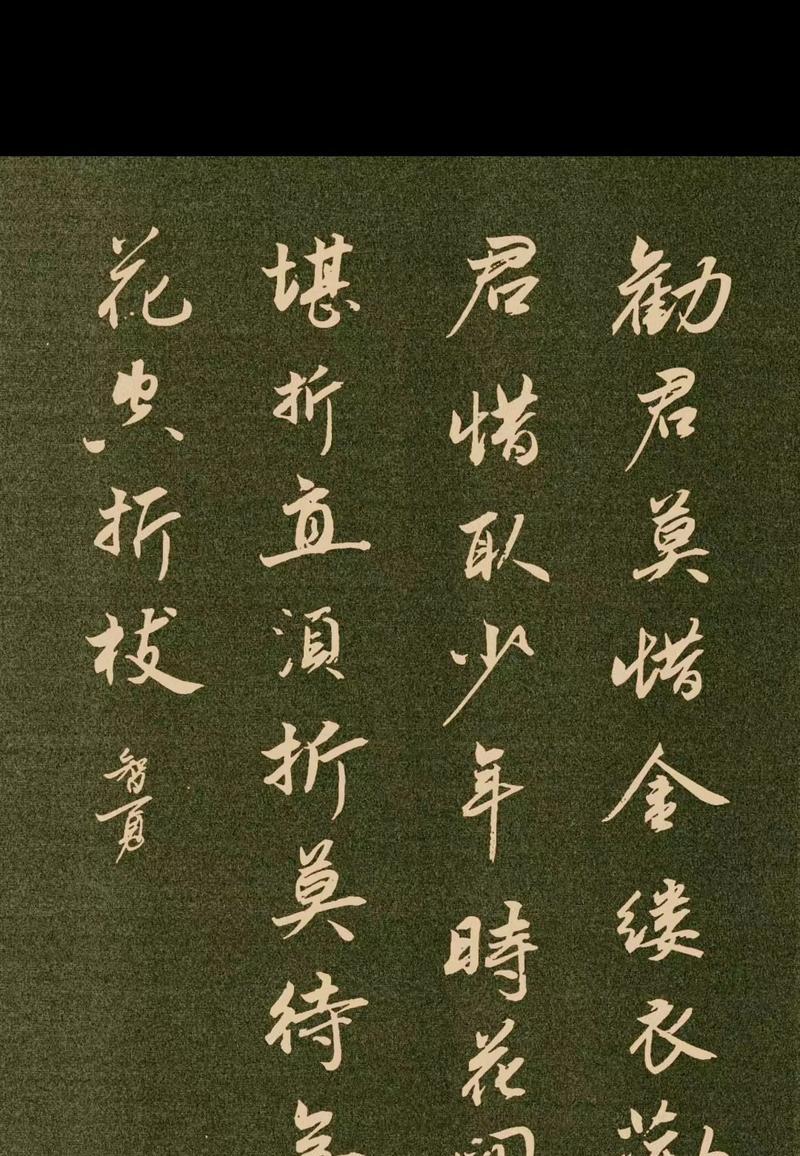 勸君莫惜金缕衣
君惜取少年時花
堪折直須折莫待
花空折枝